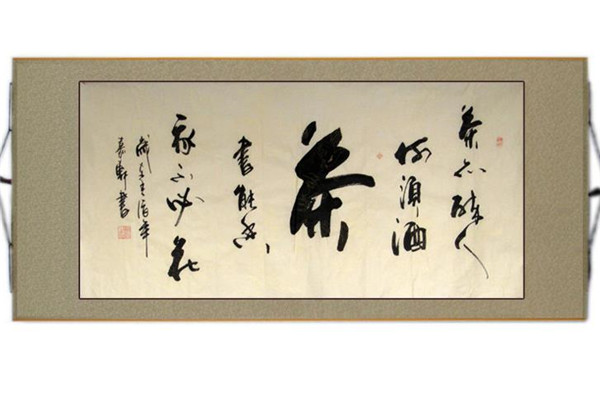 茶亦醉人
何須酒
茶
書能香
我不必花
年
軒書